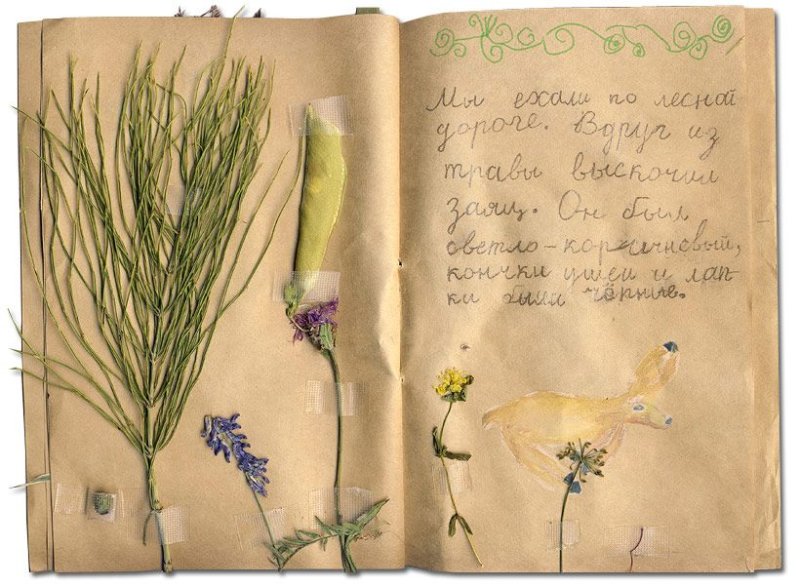 Мы ехали по лесной
дороге. Вдруг из
травы выскочил
заяц. Он был
светло-коричневый,
кончики ушей и лап-
ки были чёрные.